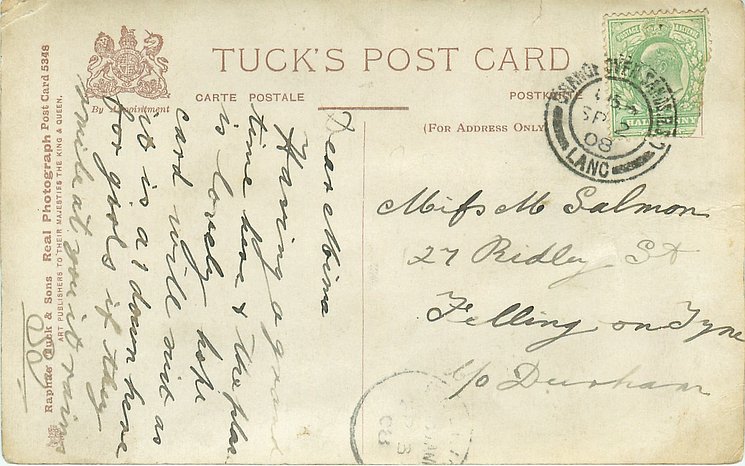 TUCK'S POST CARD
By Appointment
CARTE POSTALE
POSTKARTE
(FOR ADDRESS ONLY)
POSTAGE
HALFPENNY
GRANGE OVER SANDS R.S.O
SP 2
08
LANC
Miss M Salmon
27 Ridley St
Felling on Tyne
c/o Durham
08
Dear Mima
Having a grand
time here & the place
is lovely hope
card will suit as
it is a 1 down here
for girls if they
smile at you it rains
Raphael Tuck & Sons Real Photograph Post Card 5348
ART PUBLISHERS TO THEIR MAJESTIES THE KING & QUEEN.